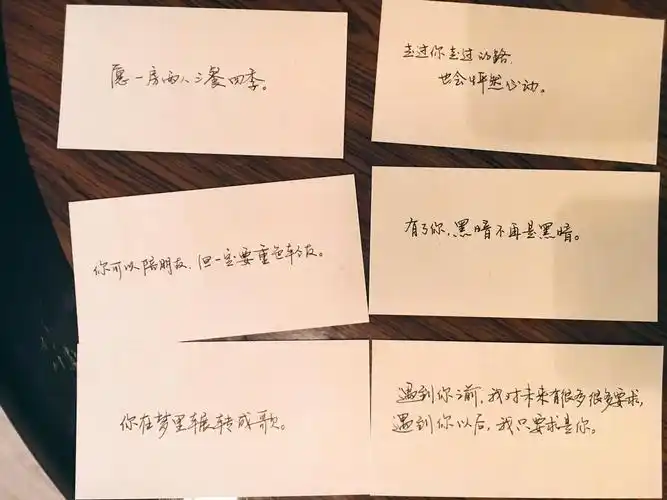 愿一房两人三餐四季。
走过你走过的路，
也会怦然心动。
你可以陪朋友，但一定要重色轻友。
有了你，黑暗不再是黑暗。
你在梦里辗转成歌。
遇到你之前，我对未来有很多很多要求，
遇到你以后，我只要求是你。